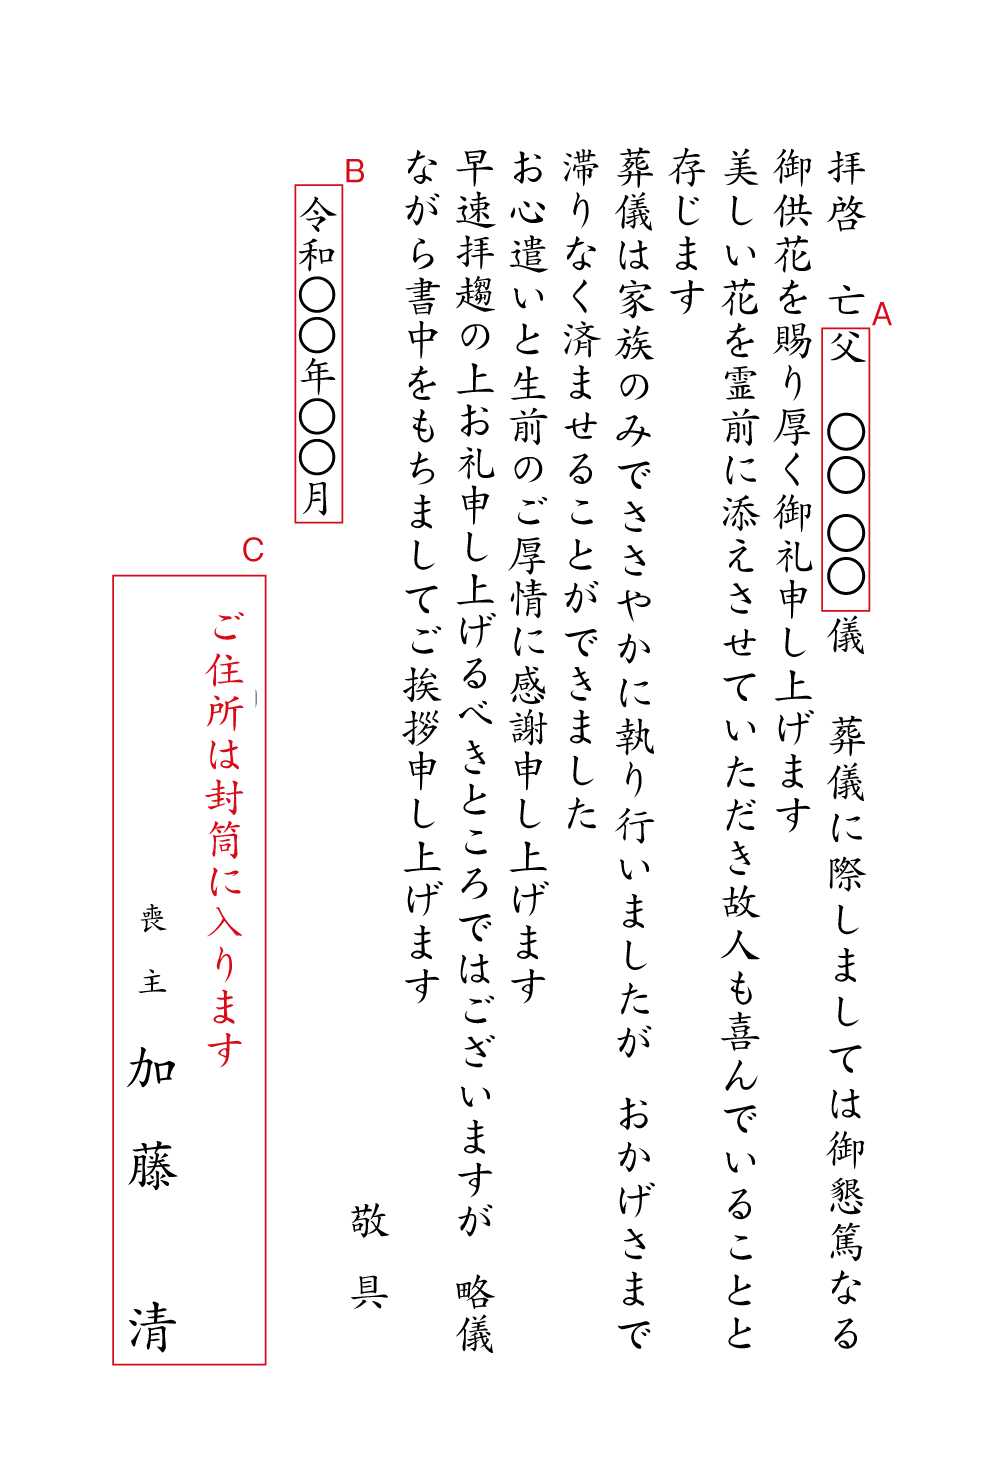 拝啓　亡父　〇〇 〇〇儀　葬儀に際しましては御懇篤なる
A
御供花を賜り厚く御礼申し上げます
美しい花を霊前に添えさせていただき故人も喜んでいることと
存じます
葬儀は家族のみでささやかに執り行いましたが　おかげさまで
滞りなく済ませることができました
お心遣いと生前のご厚情に感謝申し上げます
早速拝趨の上お礼申し上げるべきところではございますが　略儀
ながら書中をもちましてご挨拶申し上げます
敬具
B
令和〇〇年〇〇月
C
ご住所は封筒に入ります
喪主　加藤　清